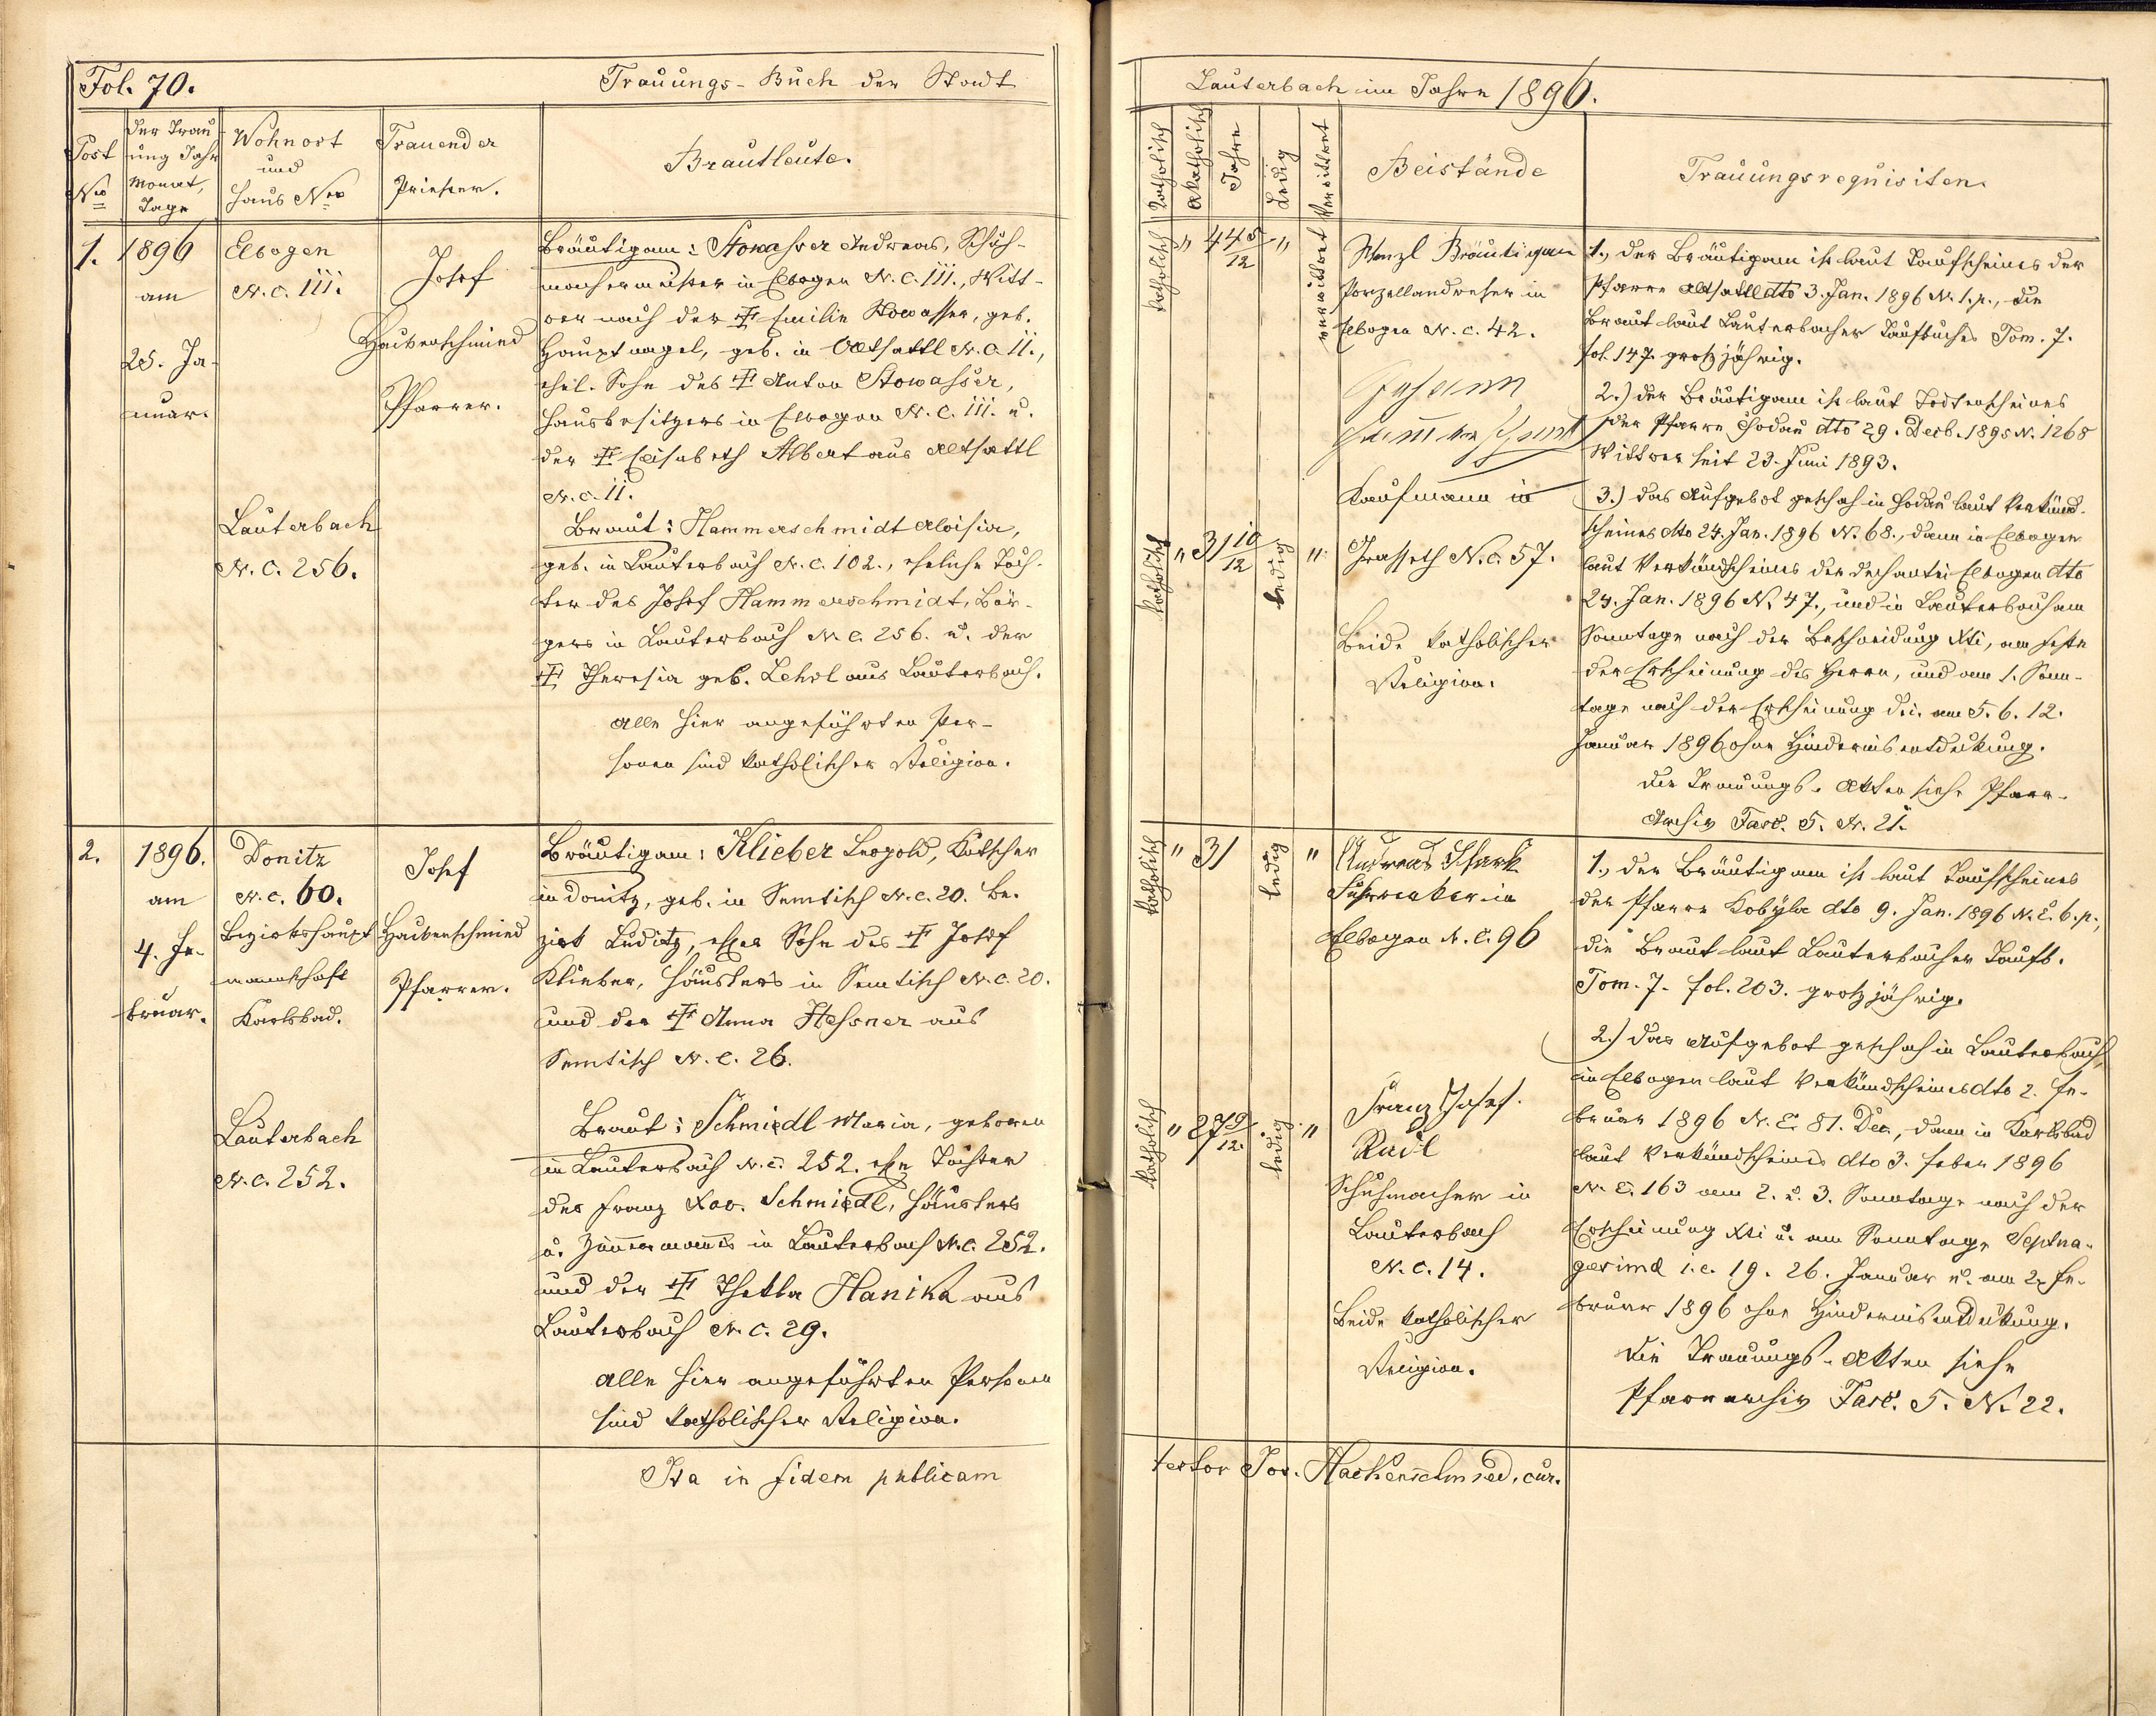 Fol. 70.
Trauungs-Buch der Stadt
Post
No
der Trau
ung Jahr
Monat,
Tage
Wohnort
und
Haus Nro
Trauender
Priester.
Brautleute.
1.
1896
am
28. Ja-
nuar.
Elbogen
N. C. 111.
Josef
Hackenschmied
Pfarrer.
Bräutigam: Stowasser Andreas, Schuh-
machermeister in Elbogen N. C. 111., Witt-
wer nach der † Emilie Stowasser, geb.
Hauptnagel, geb. in Altsattl N. C. 11.,
ehel. Sohn des † Anton Stowasser,
Hausbesitzers in Elbogen N. C. 111. u.
der † Elisabeth Albert aus Altsattl
N. c. 11.
Lauterbach
N. C. 256.
Braut: Hammerschmidt Aloisia,
geb. in Lauterbach N. C. 102., eheliche Toch-
ter des Josef Hammerschmidt, Bür-
gers in Lauterbach N. C. 256. u. der
† Theresia geb. Lehrl aus Lauterbach.
Alle hier angeführten Per-
sonen sind katholischer Religion.
2.
1896.
am
4. Fe-
bruar.
Donitz
N. c. 60.
Bezirkshaupt
mannschaft
Karlsbad.
Josef
Hackenschmied
Pfarrer.
Bräutigam: Klieber Leopold, Kutscher
in Donitz, geb. in Semtisch N. C. 20. Be-
zirk Luditz, ehel Sohn des † Josef
Klieber, Häuslers in Semtisch N. C. 20.
und der † Anna Hessner aus
Semtisch N. C. 26.
Lauterbach
N. C. 252.
Braut: Schmiedl Maria, geboren
in Lauterbach N. C. 252. ehe Tochter
des Franz Xav. Schmiedl, Häuslers
u. Zimmermanns in Lauterbach N. C. 252.
und der † Thekla Hanika aus
Lauterbach N. C. 29.
Alle hier angeführten Personen
sind katholischer Religion.
Ita in fidem publicam
Lauterbach im Jahre 1896.
Katholisch
Akatholisch
Jahre
Ledig
Verwittwet
Beistände
Trauungsrequisiten.
katholisch
"
44 5/12
"
verwittwet
Wenzl Bräutigam
Porzellandreher in
Elbogen N. C. 42.
Kaufmann in
katholisch
"
31 10/12
ledig
"
Grasseth N. C. 57.
Beide katholischer
Religion.
1., Der Bräutigam ist laut Taufscheines der
Pfarre Altsattl dto 3. Jan. 1896 N. 1. p., die
Braut laut Lauterbacher Taufbuches Tom. 7.
fol. 147. großjährig.
2.) Der Bräutigam ist laut Todtenscheines
der Pfarre Chodau dto 29. Decb. 1895 N. 1268
Wittwer seit 23. Juni 1893.
3.) Das Aufgebot geschah in Chodau laut Verkünd-
scheines dto 24. Jan. 1896 N. 68., dann in Elbogen
laut Verkündscheines der Dechantei Elbogen dto
24. Jan. 1896 N. 47., und in Lauterbach am
Sonntage nach der Beschneidung Xti, am Feste
der Erscheinung des Herrn, und am 1. Sonn-
tage nach der Erscheinung d. i. am 5. 6. 12.
Januar 1896 ohne Hindernisentdeckung.
Die Trauungs-Akten siehe Pfarr-
Archiv Fasc. 5. N. 21.
katholisch
"
31
ledig
"
Andreas Schark
Fuhrwerker in
Elbogen N. C. 96
katholisch
"
27 9/12.
ledig
"
Franz Josef
Radl
Schuhmacher in
Lauterbach
N. C. 14.
Beide katholischer
Religion.
1., Der Bräutigam ist laut Taufscheines
der Pfarre Kobyla dto 9. Jan. 1896 N. E. 6. p.,
die Braut laut Lauterbacher Taufb.
Tom. 7. fol. 203. großjährig.
2.) Das Aufgebot geschah in Lauterbach,
in Elbogen laut Verkündscheines dto 2. Fe-
bruar 1896 N. E. 81. Dec., dann in Karlsbad
laut Verkündscheines dto 3. Feber 1896
N. E. 163 am 2. u. 3. Sonntage nach der
Erscheinung Xti u. am Sonntage Septua-
gesima i. e. 19. 26. Januar u. am 2. Fe-
bruar 1896 ohne Hindernisentdeckung.
Die Trauungs-Akten siehe
Pfarrarchiv Fasc. 5. N. 22.
testor Jos. Hackenschmied, cur.